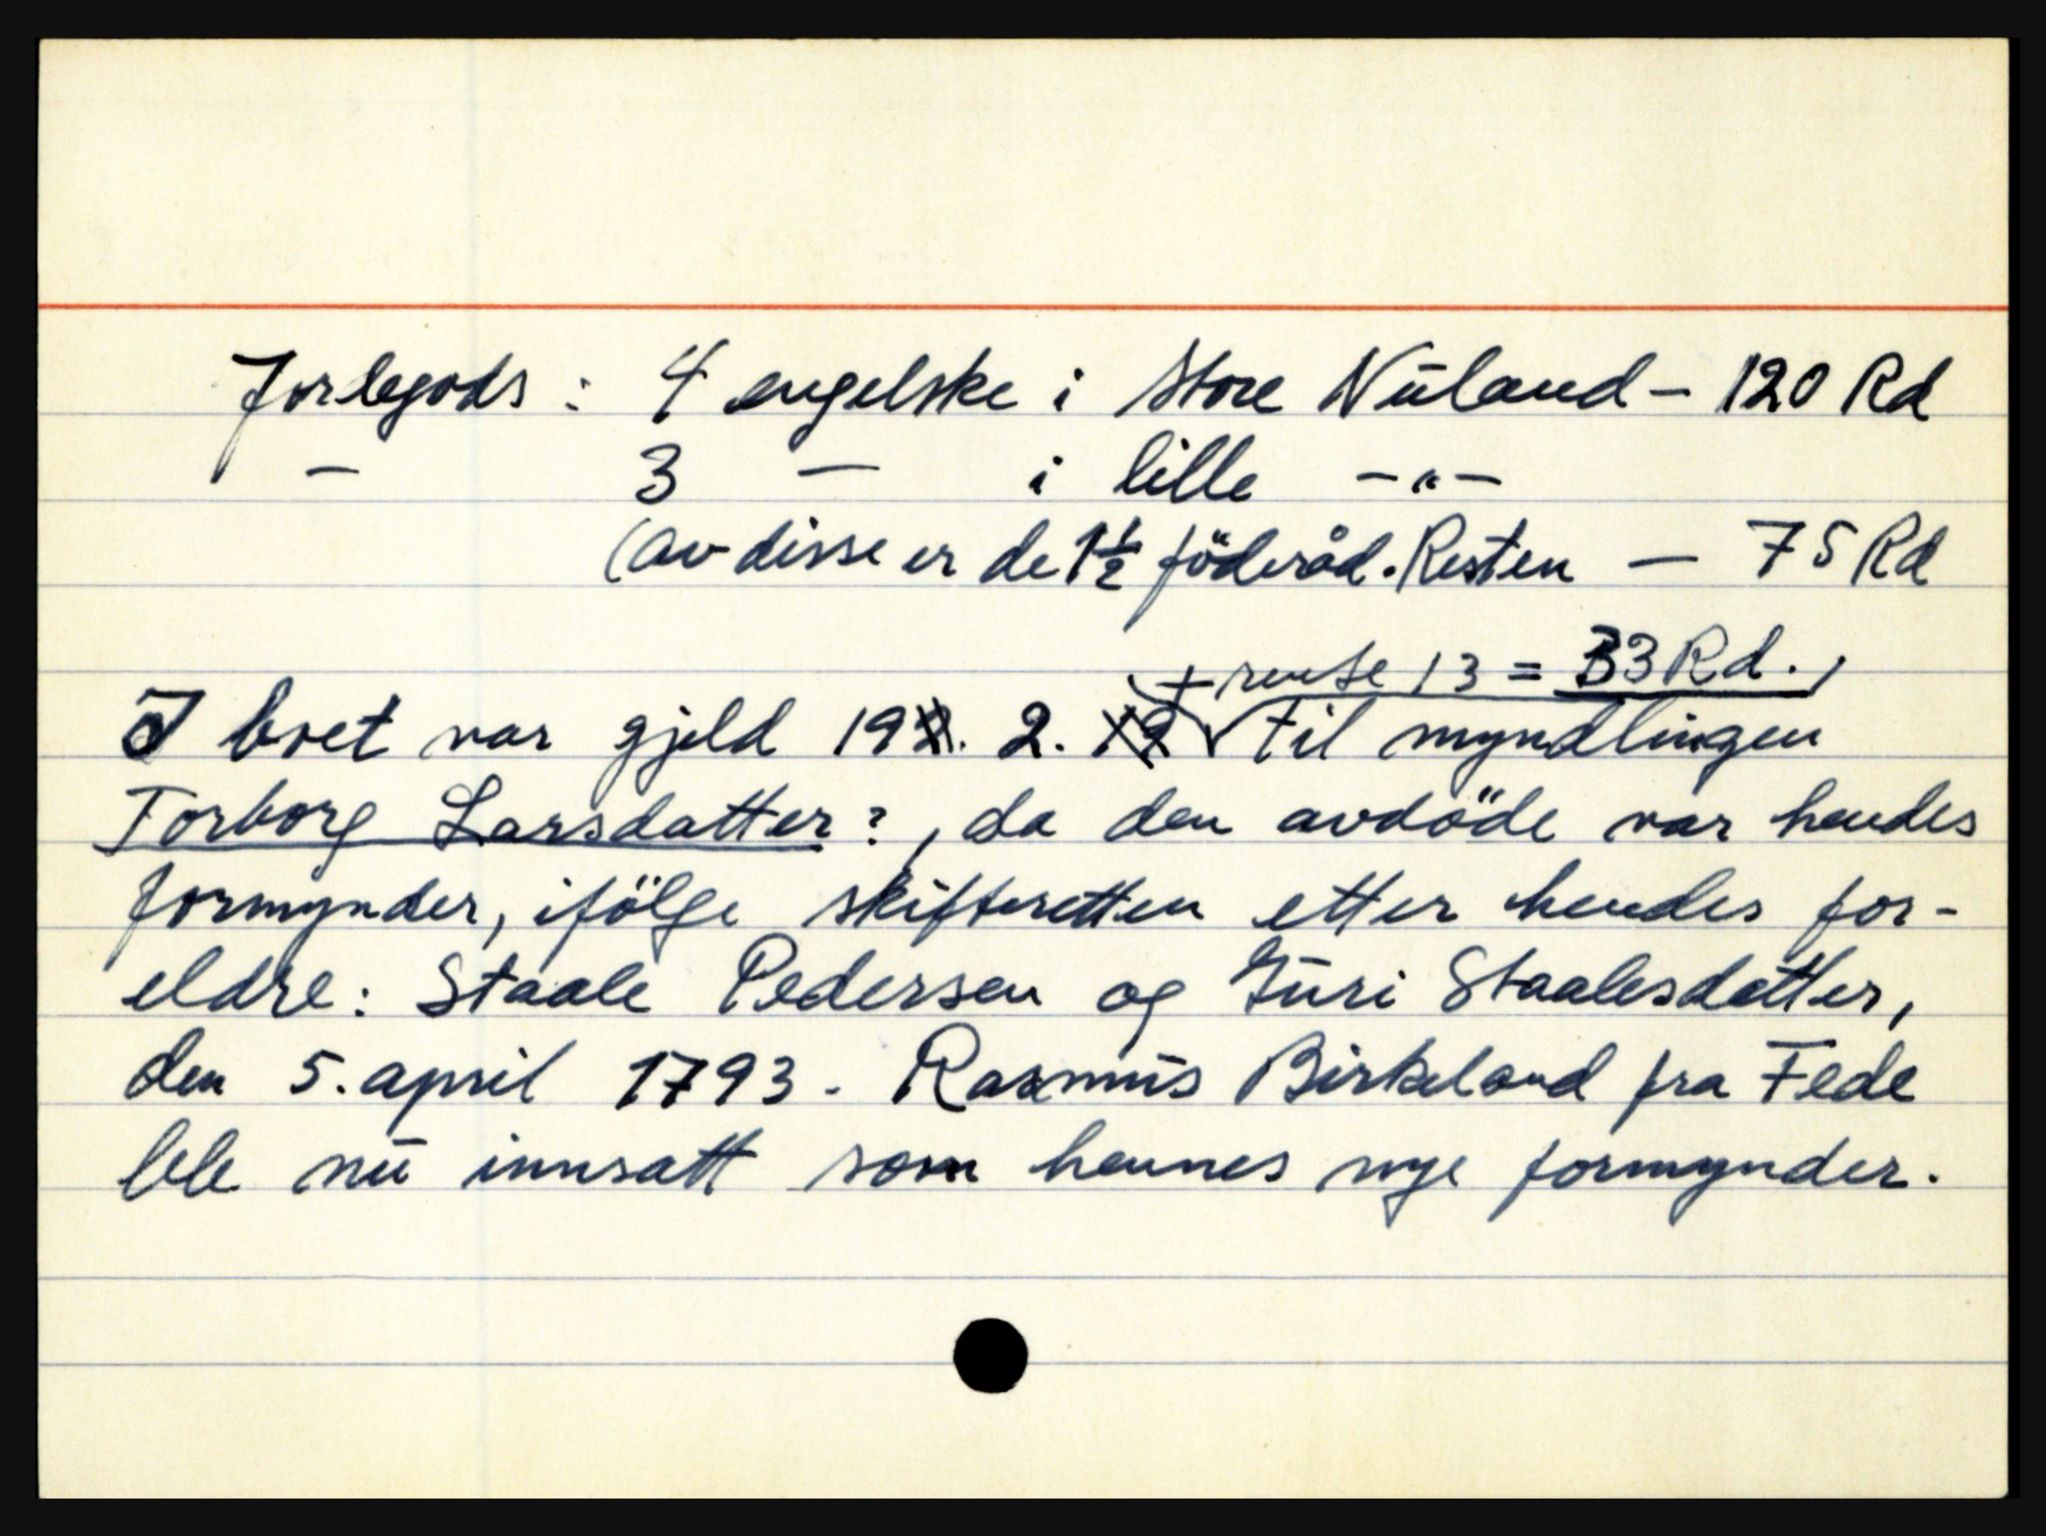 Jordegods : 4 engelske i store Nuland - 120 Rd
— 3 — i lille -"-
(av disse er de 1½ föderåd. Resten — 75 Rd
+ rente 13 = 33 Rd.,
I boet var gjeld 19 . 2. til myndlingen
Torborg Larsdatter?, da den avdöde var hendes
formynder, ifölge skifteretten etter hendes for-
eldre: Staale Pedersen og Guri Staalesdatter,
den 5. april 1793. Rasmus Birkeland fra Fede
ble nu innsatt som hennes nye formynder.